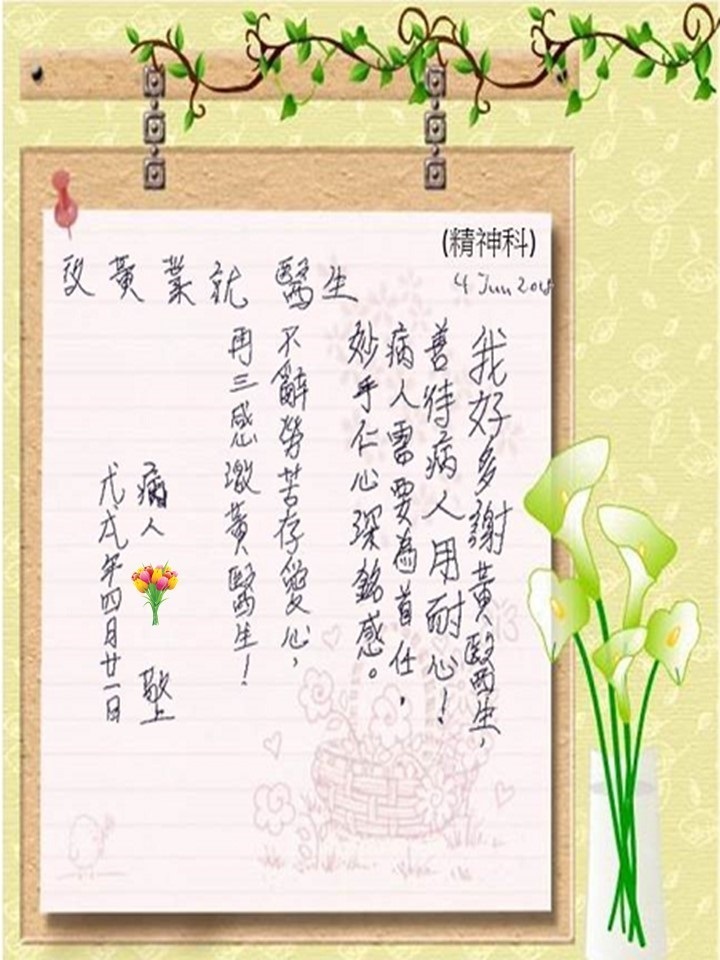 (精神科)
4 Jun 2018
致黃業就醫生
我好多謝黃醫生，
善待病人用耐心！
病人需要為首任，
妙手仁心深銘感。
不辭勞苦存愛心，
再三感激黃醫生！
病人 敬上
戊戌年四月廿一日